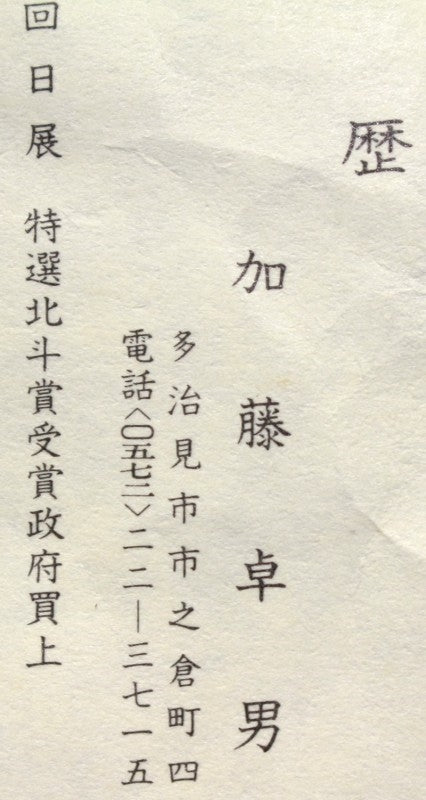 歴
加藤卓男
多治見市市之倉町四
電話〈〇五七二〉二二―三七一五
回日展　特選北斗賞受賞政府買上